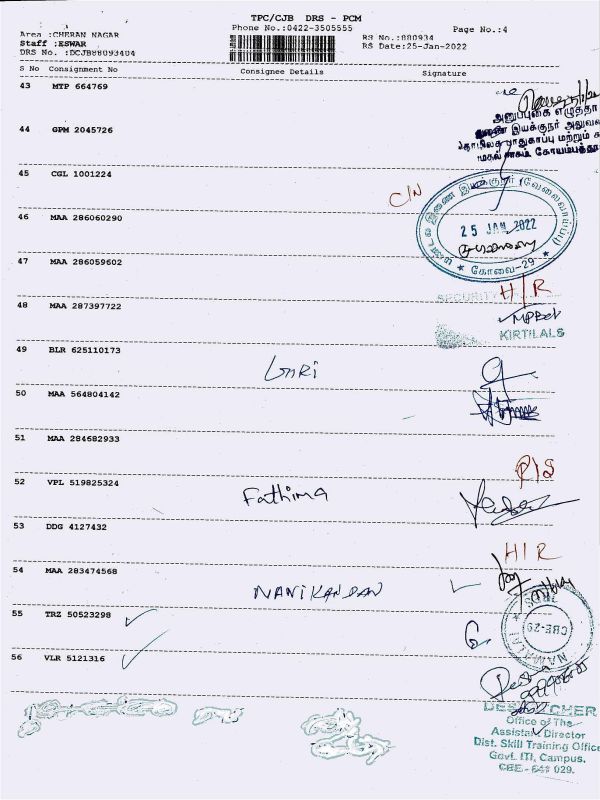 TPC/CJB DRS - PCM
Area :CHERAN NAGAR Phone No.:0422-3505555 RS No.:880934 Page No.:4
Staff :ESWAR RS Date:25-Jan-2022
DRS No. :DCJB88093404
S No Consignment No Consignee Details Signature
43 MTP 664769
அனுப்புகை எழுத்தர்
44 GPM 2045726
இணை இயக்குநர் அலுவல
பாதுகாப்பு மற்றும் சு
கோயம்புத்தூ
45 CGL 1001224
C/N
46 MAA 286060290
மண்டல இணை இயக்குநர் (வேலைவாய்ப்பு)
25 JAN 2022
★ கோவை-29 ★
47 MAA 286059602
H/R
SECURITY
48 MAA 287397722
KIRTILALS
49 BLR 625110173
50 MAA 564804142
51 MAA 284682933
P/S
52 VPL 519825324
Fathima
53 DDG 4127432
H/R
54 MAA 283474568
MANIKANDAN
55 TRZ 50523298
CBE-29
56 VLR 5121316
DESPATCHER
Office of The
Assistant Director
Dist. Skill Training Office
Govt. ITI, Campus.
CBE - 641 029.